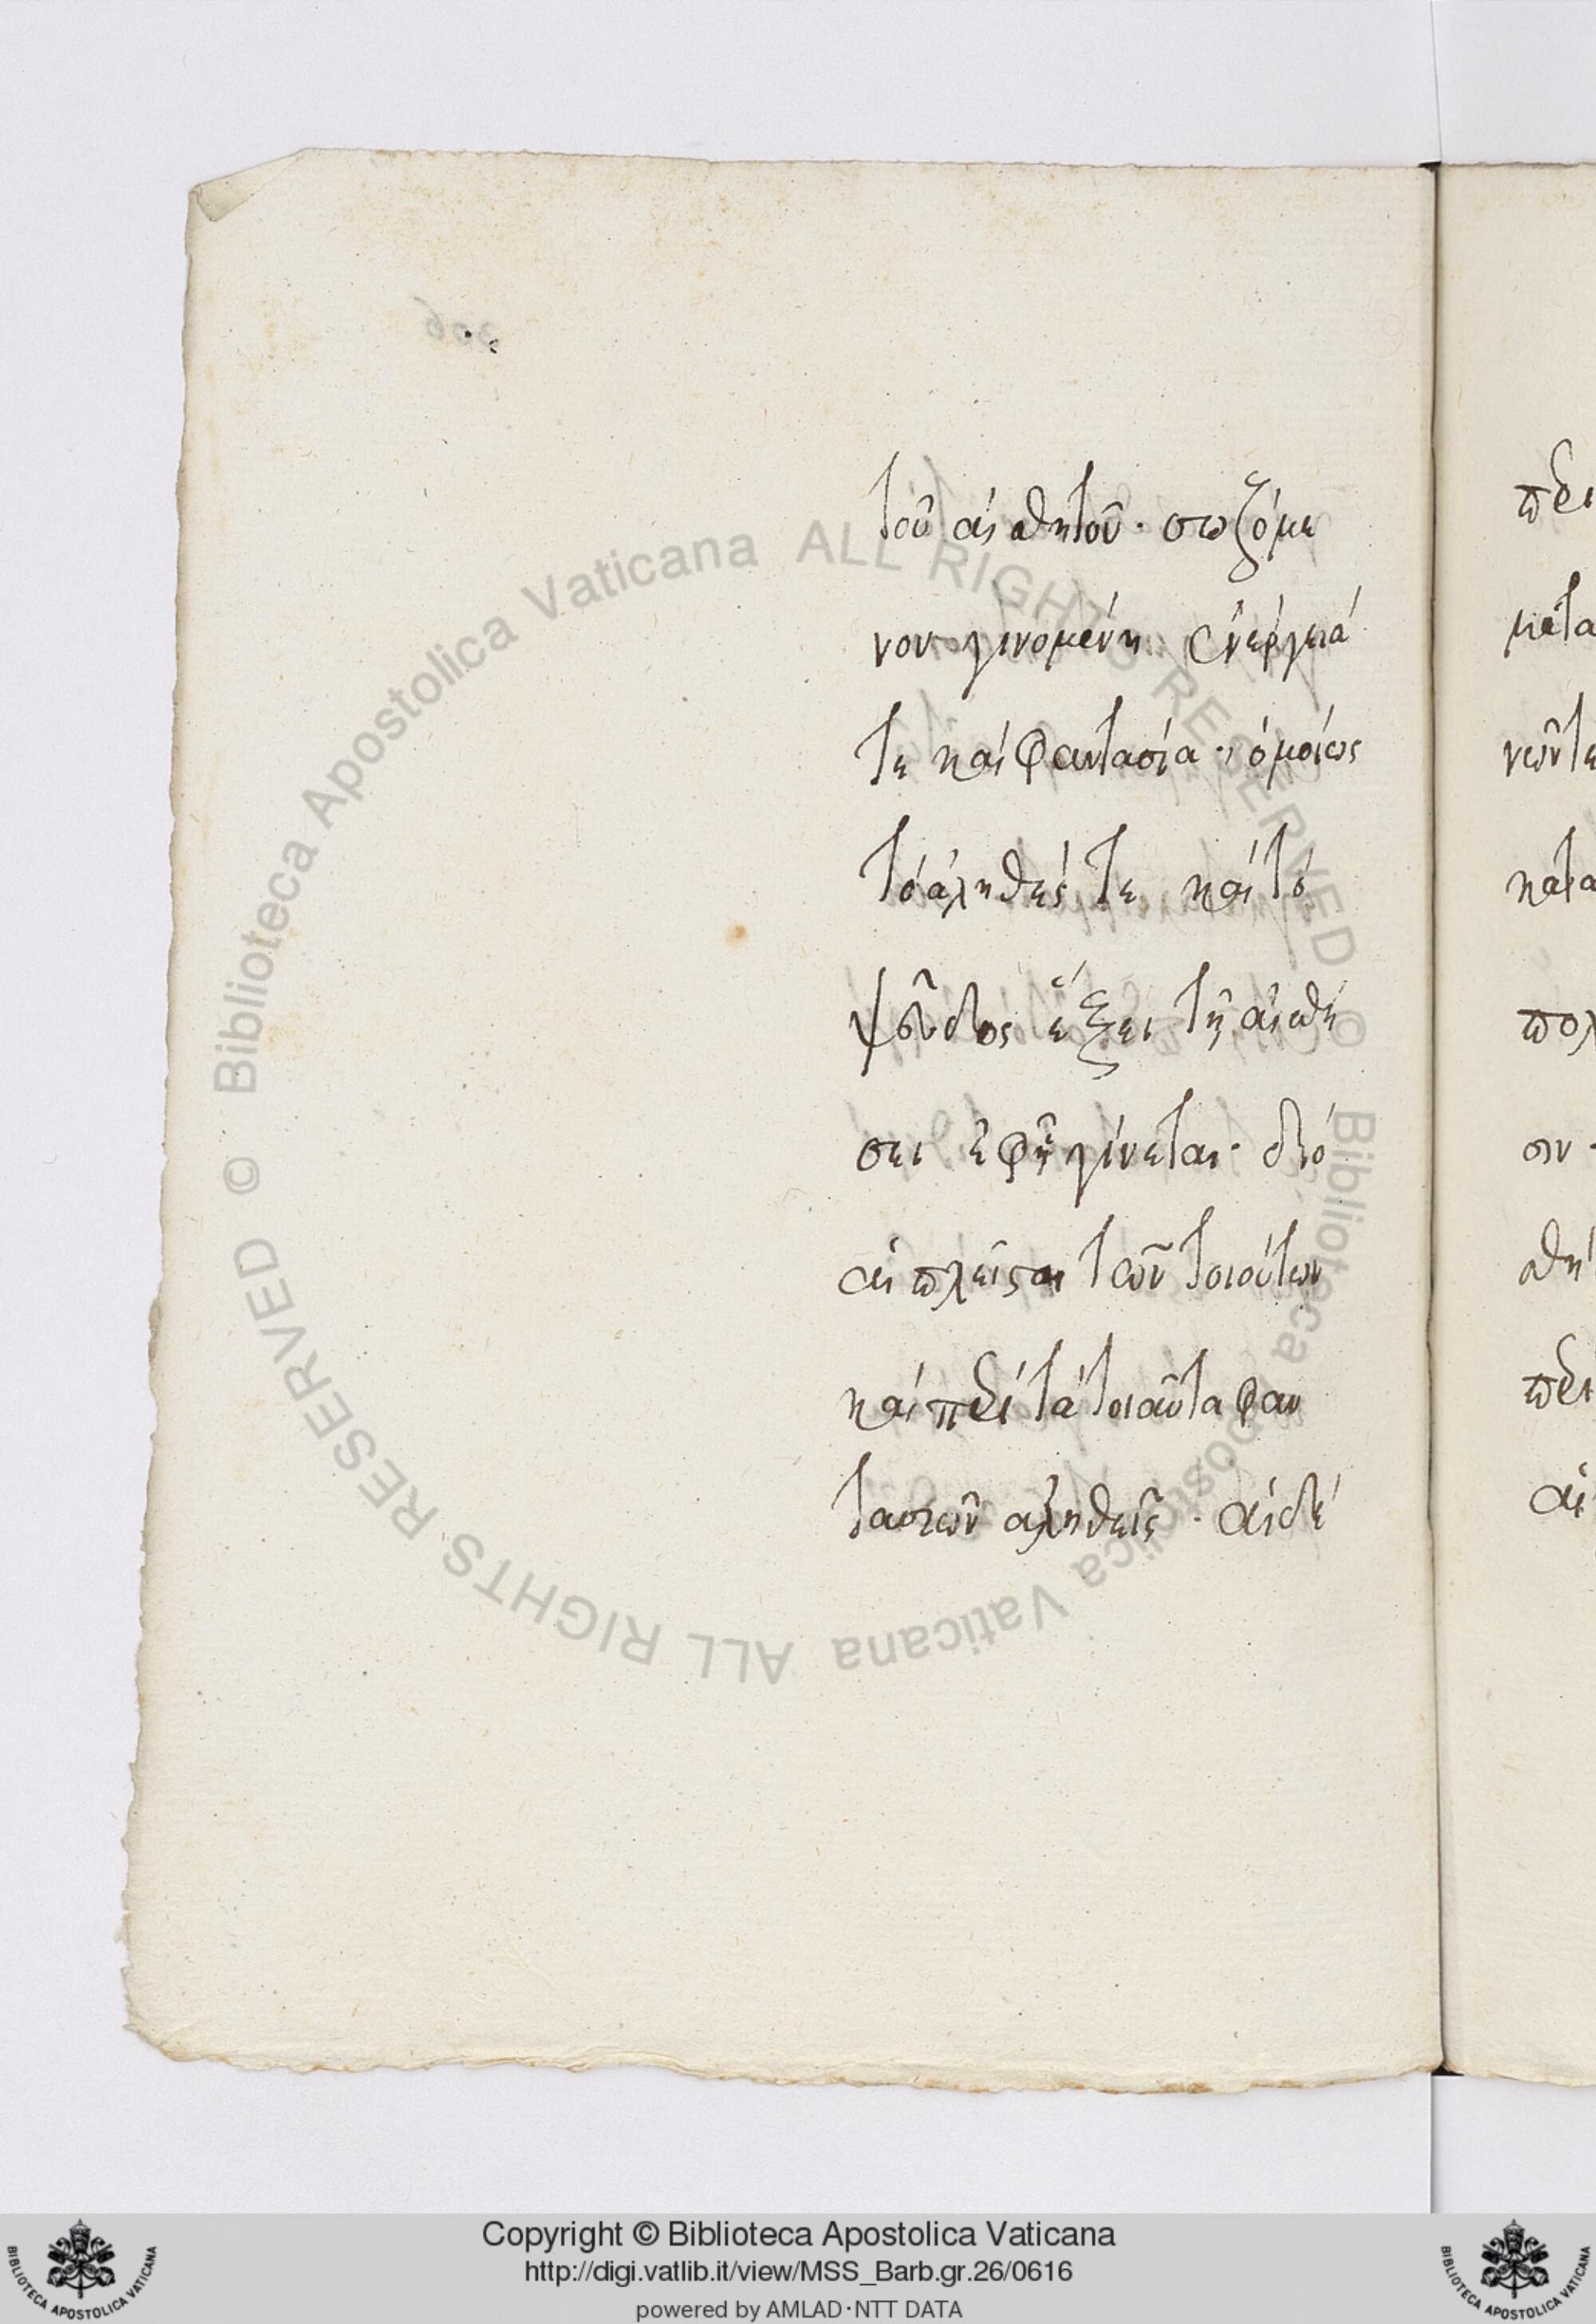 τοῦ αἰσθητοῦ· σωζόμε
νον γινομένη ἐνέργειά
τε καὶ φαντασία· ὁμοίως
τὸ ἀληθές τε καὶ τὸ
ψεῦδος ἕξει τῇ αἰσθή
σει ἐφ ᾗ γίνεται· διό
αἱ πλεῖσται τῶν τοιούτων
καὶ περὶ τὰ τοιαῦτα φαν
τασιῶν ἀληθεῖς· αἱ δέ
περι
μετα
νῶντε
κατα
πολ
σιν·
σθή
περι
αἱ
© Biblioteca Apostolica Vaticana ALL RIGHTS RESERVED © Biblioteca Apostolica Vaticana ALL RIGHTS RESERVED
Copyright © Biblioteca Apostolica Vaticana
http://digi.vatlib.it/view/MSS_Barb.gr.26/0616
powered by AMLAD·NTT DATA
BIBLIOTECA APOSTOLICA VATICANA
BIBLIOTECA APOSTOLICA VATICANA